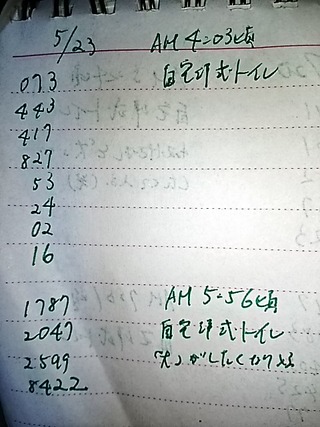 5/23 AM 4:03頃
073 自宅洋式トイレ
443
417
827
53
24
02
16
1787 AM 5:56頃
2047 自宅洋式トイレ
2599 「大」がしたくかり
8422